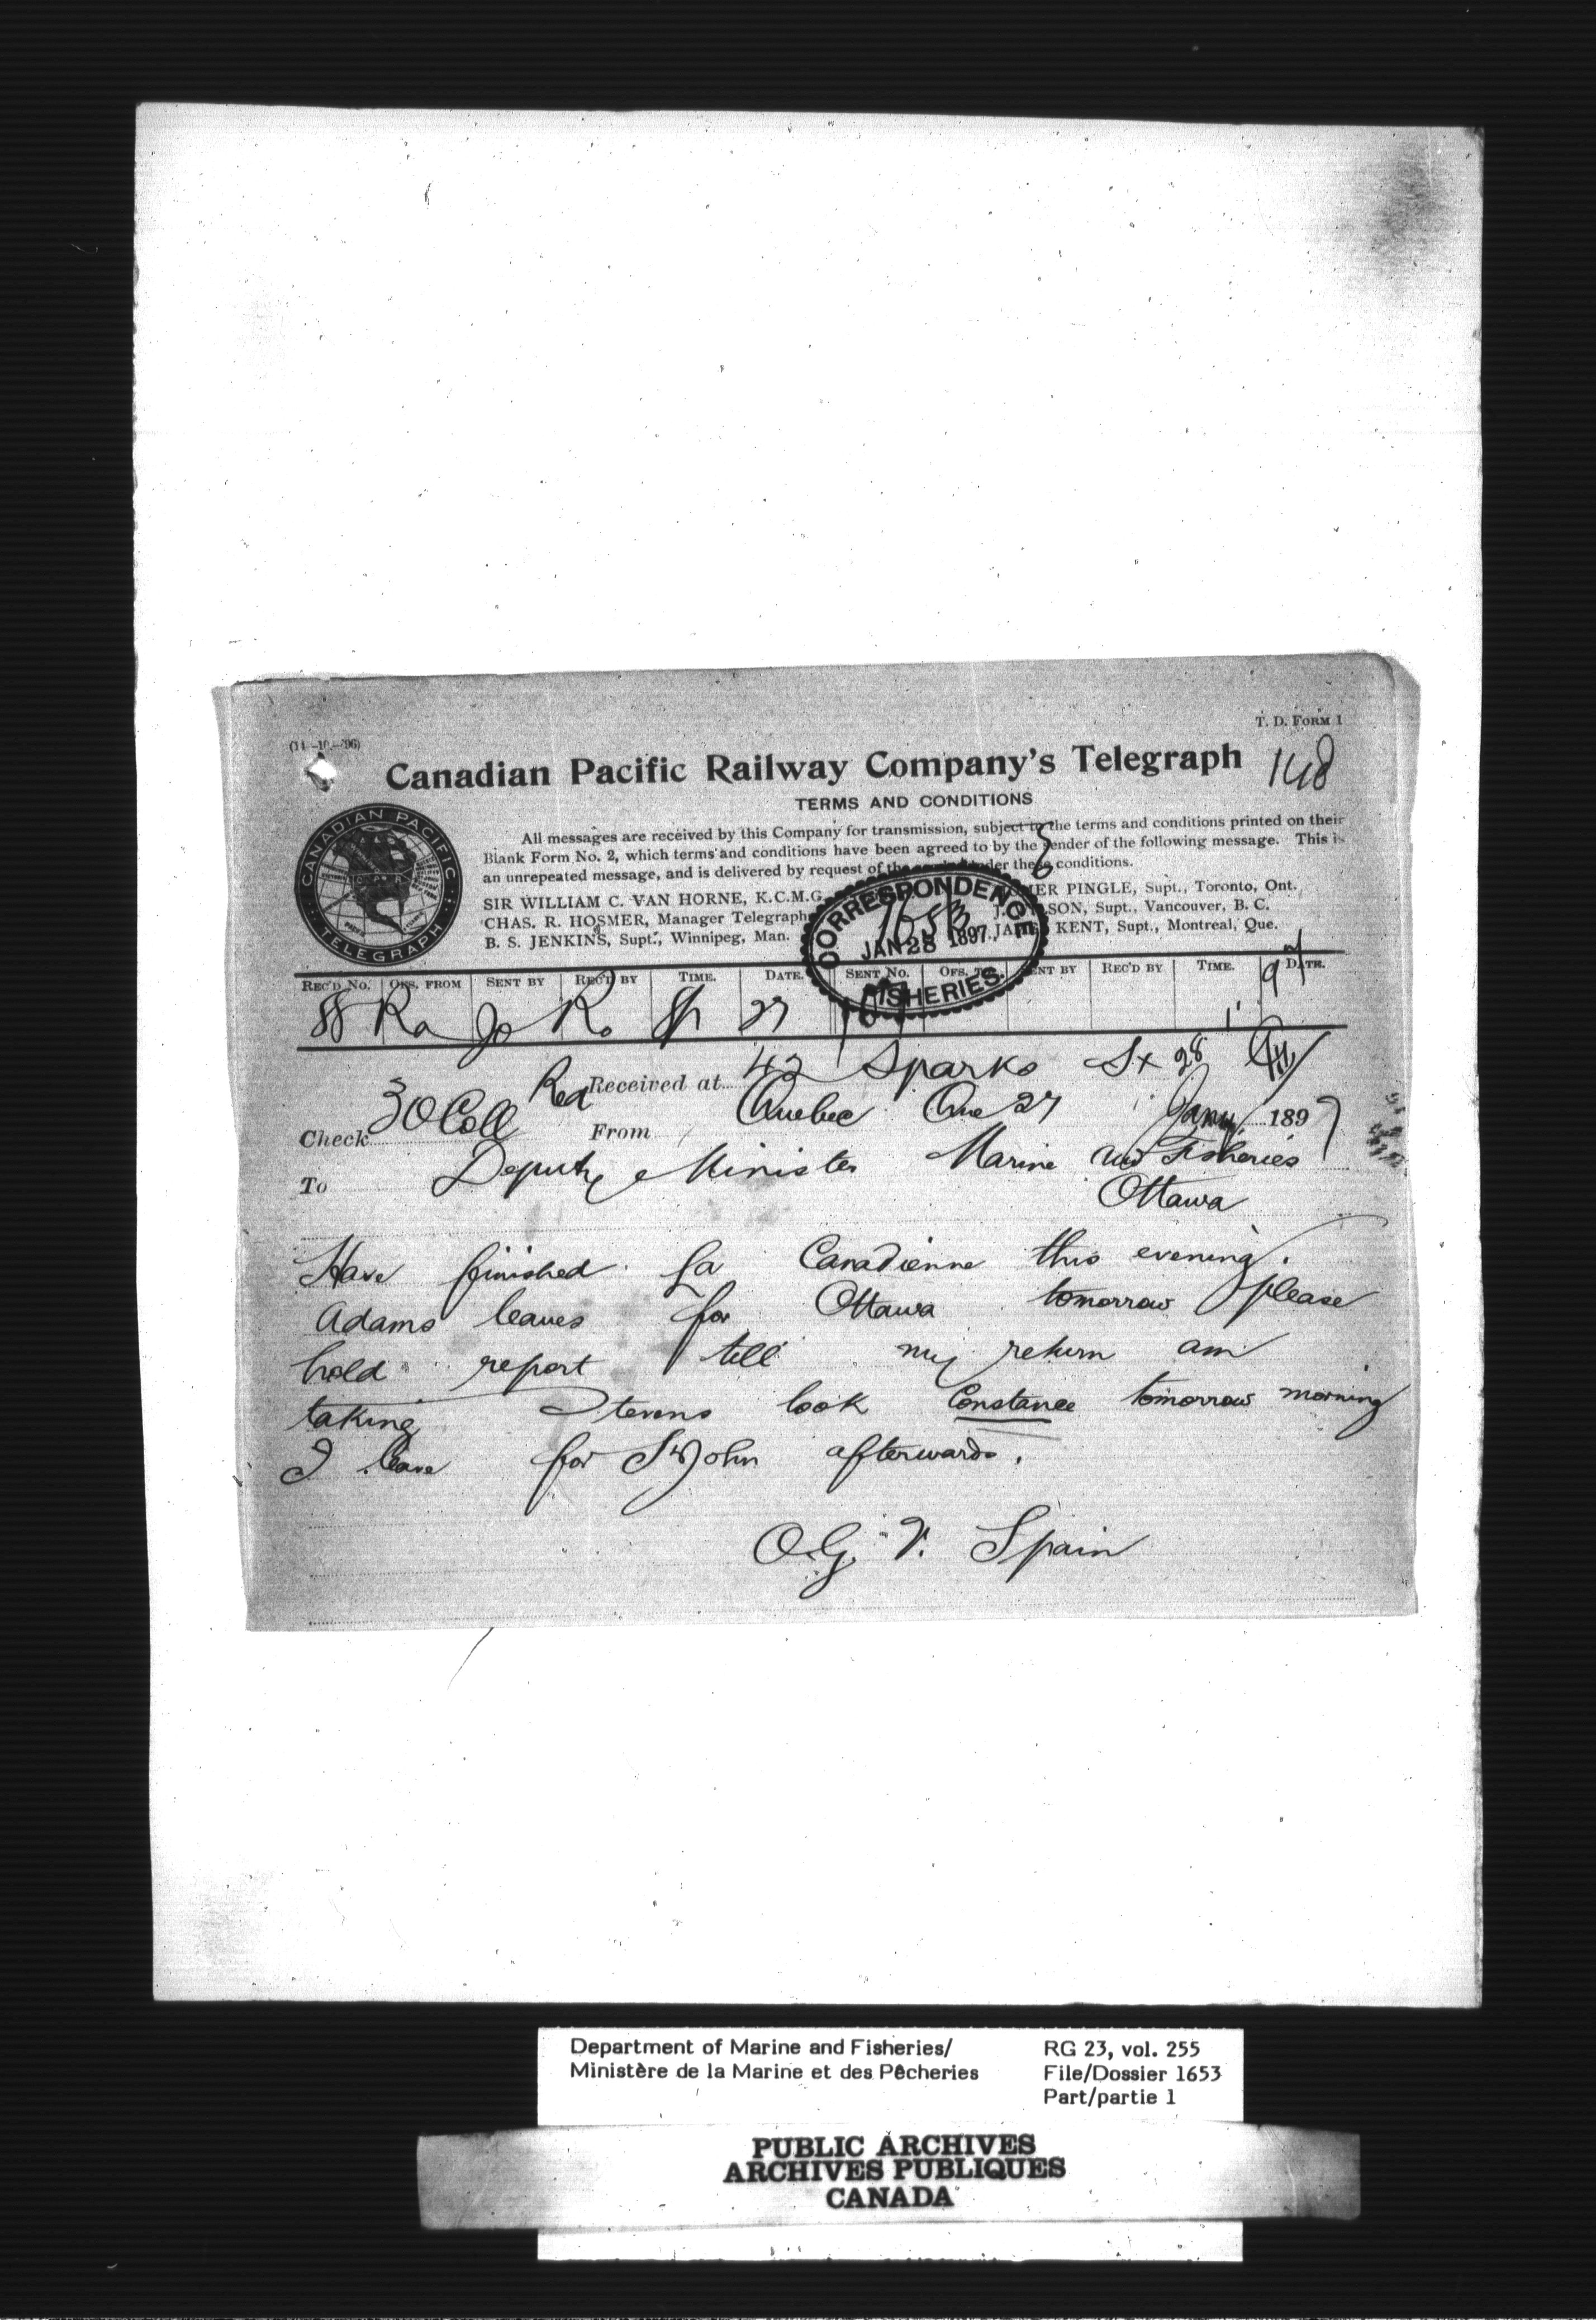 T. D. FORM 1
(14-10-'96)
Canadian Pacific Railway Company's Telegraph
148
TERMS AND CONDITIONS
All messages are received by this Company for transmission, subject to the terms and conditions printed on their
Blank Form No. 2, which terms and conditions have been agreed to by the sender of the following message. This is
an unrepeated message, and is delivered by request of the under these conditions.
SIR WILLIAM C. VAN HORNE, K.C.M.G.
CHAS. R. HOSMER, Manager Telegraph
B. S. JENKINS, Supt., Winnipeg, Man.
PINGLE, Supt., Toronto, Ont.
Supt., Vancouver, B. C.
KENT, Supt., Montreal, Que.
CANADIAN PACIFIC
TELEGRAPH
CORRESPONDENCE
1653
JAN 28 1897
FISHERIES.
REC'D NO. OFS. FROM SENT BY REC'D BY TIME. DATE. SENT NO. OFS. TO SENT BY REC'D BY TIME. DATE.
Ra Jo 27
Received at 42 Sparks St 28
Check 30 Coll
From Quebec Que 27 Jany 1897
To Deputy Minister Marine and Fisheries
Ottawa
Have finished La Canadienne this evening.
Adams leaves for Ottawa tomorrow please
hold report till my return am
taking Stevens look Constance tomorrow morning
I leave for St John afterwards.
O.G. V. Spain
Department of Marine and Fisheries/
Ministère de la Marine et des Pêcheries
RG 23, vol. 255
File/Dossier 1653
Part/partie 1
PUBLIC ARCHIVES
ARCHIVES PUBLIQUES
CANADA